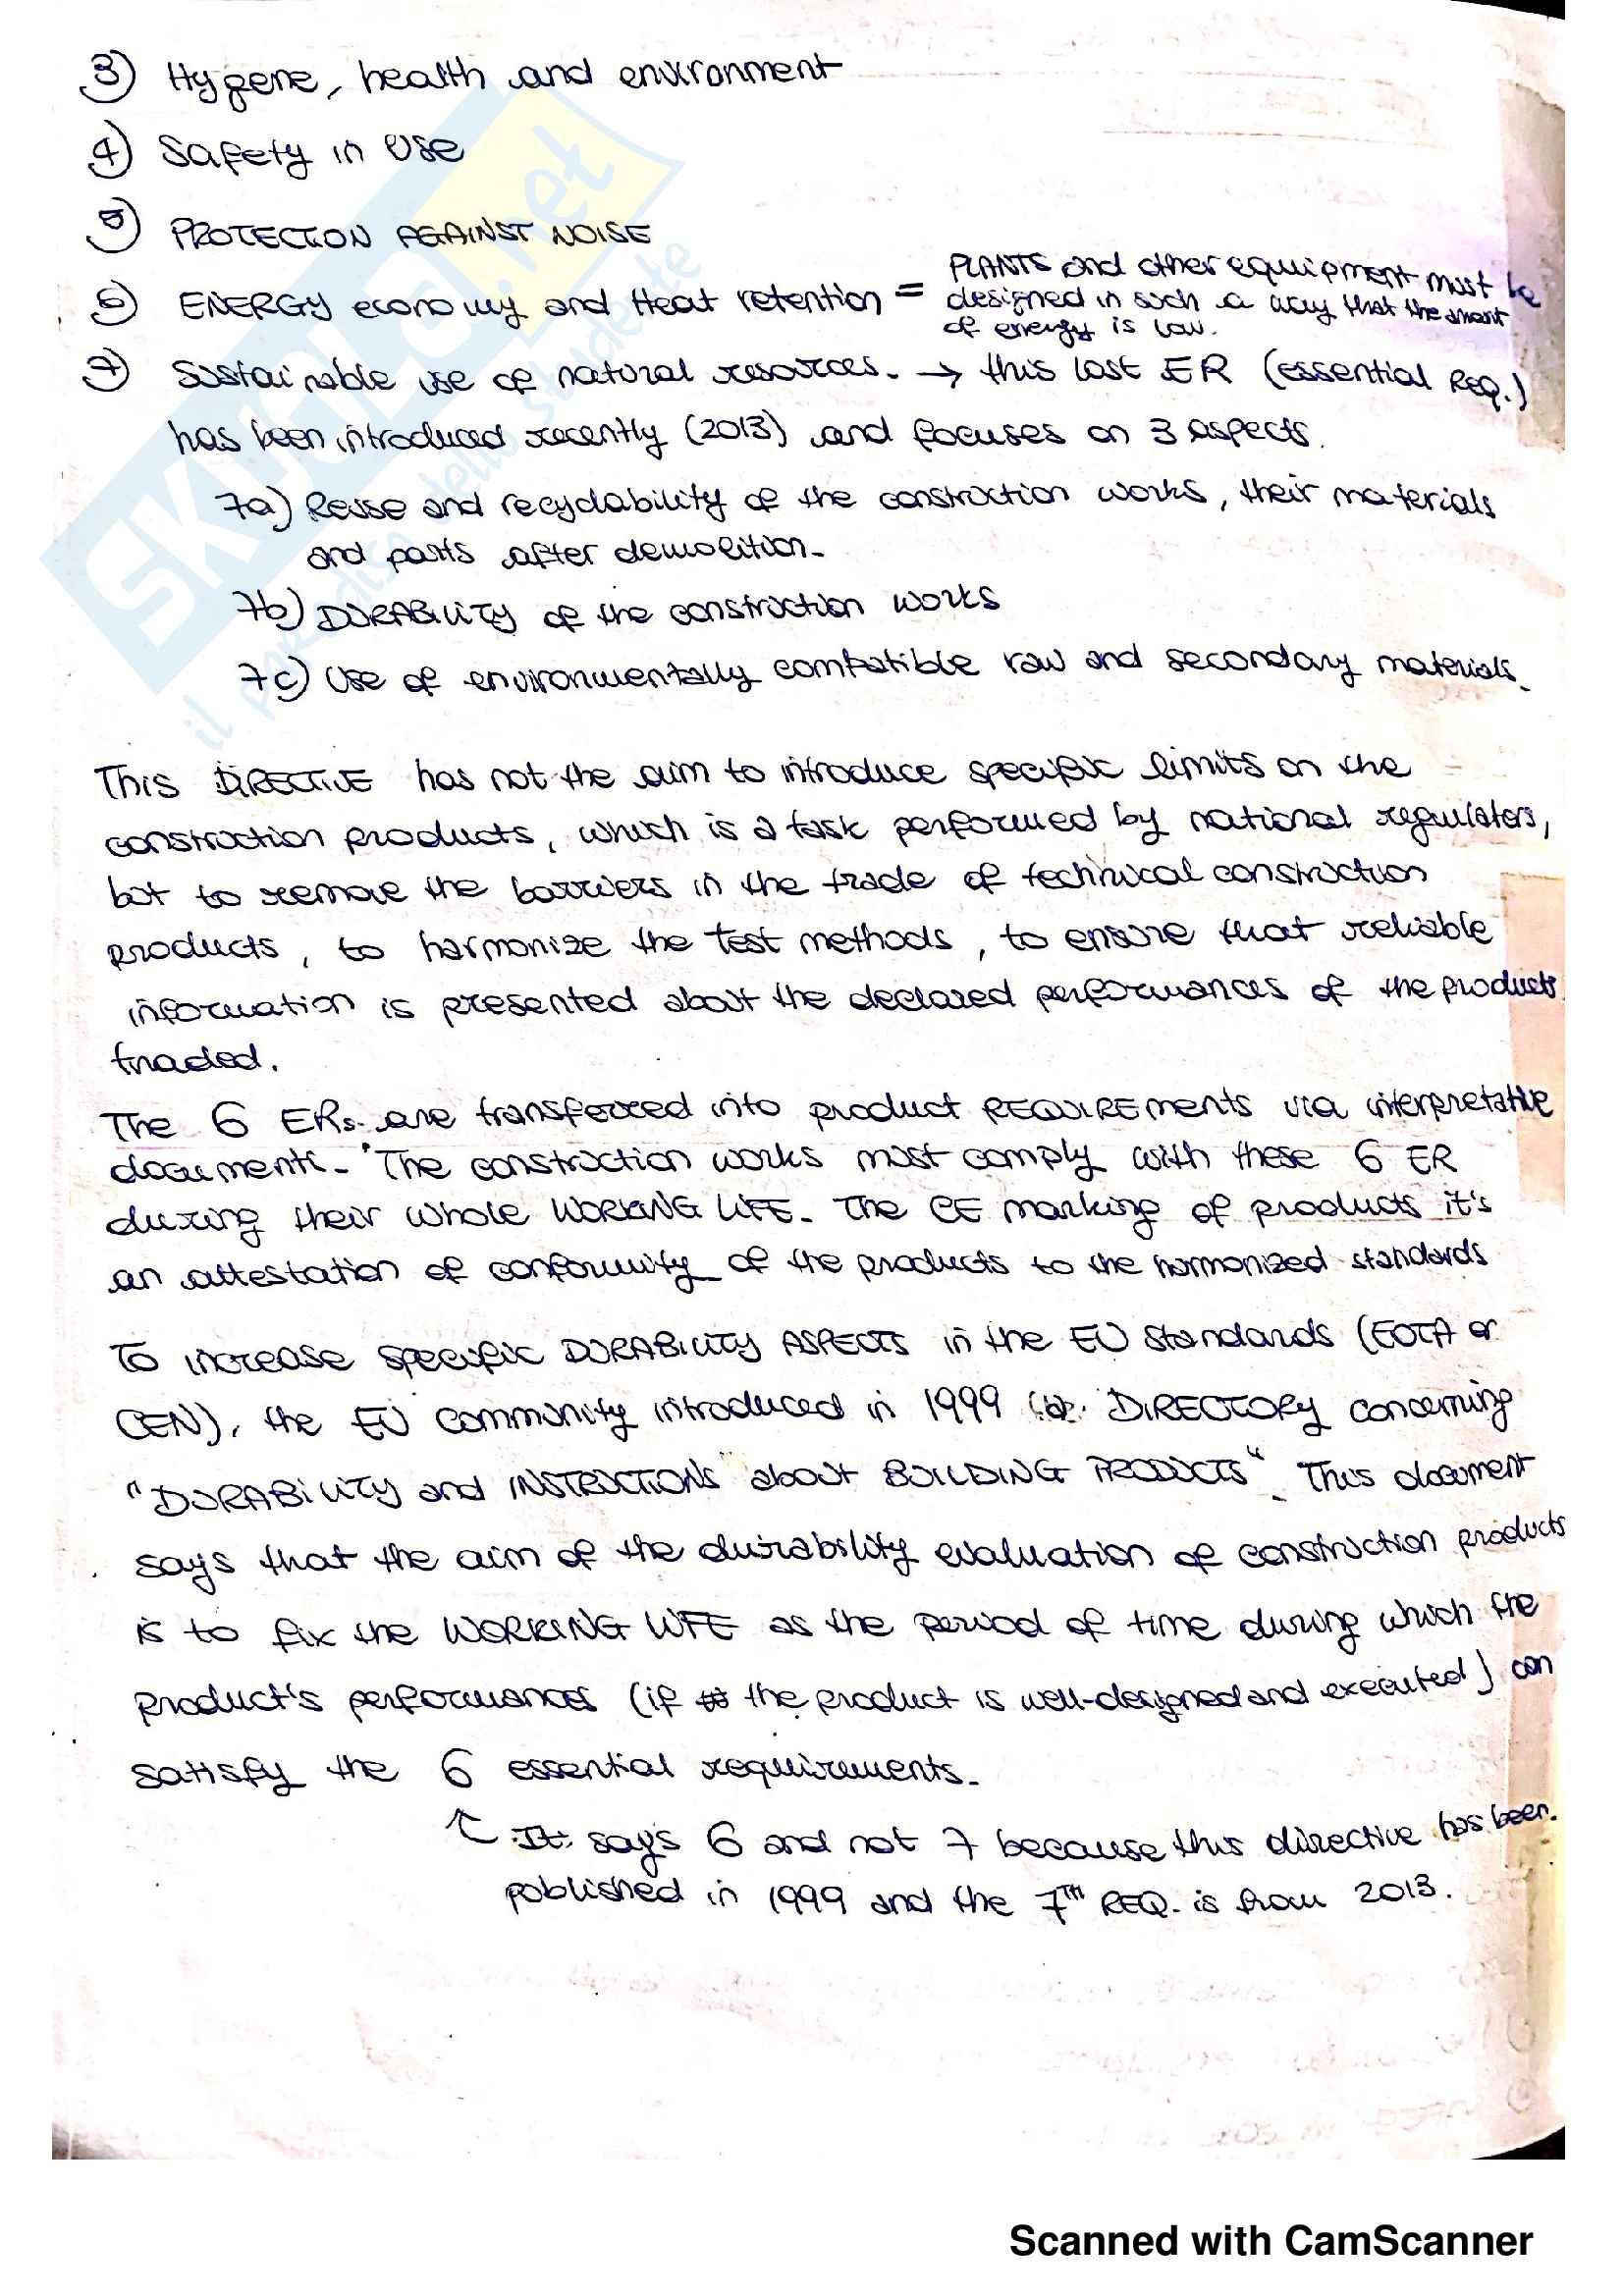 3) Hygene, health and environment
4) Safety in Use
5) PROTECTION AGAINST NOISE
PLANTS and other equipment must be
6) ENERGY economy and Heat retention = designed in such a way that the amont
of energy is low.
7) Sustainable use of natural resources. → this last ER (essential REQ.)
has been introduced recently (2013) and focuses on 3 aspects.
7a) Reuse and recyclability of the construction works, their materials
and parts after demolition.
7b) DURABILITY of the construction works
7c) Use of environmentally compatible raw and secondary materials.
This DIRECTIVE has not the aim to introduce specific limits on the
construction products, which is a task performed by national regulators,
but to remove the barriers in the trade of technical construction
products, to harmonize the test methods, to ensure that reliable
information is presented about the declared performances of the products
traded.
The 6 ERs are transferred into product REQUIREments via interpretative
documents. The construction works must comply with these 6 ER
during their whole WORKING LIFE. The CE marking of products it's
an attestation of conformity of the products to the harmonized standards
To increase specific DURABILITY ASPECTS in the EU standards (EOTA or
CEN), the EU community introduced in 1999 DIRECTORY concerning
"DURABILITY and INSTRUCTIONS about BUILDING PRODUCTS". This document
says that the aim of the durability evaluation of construction products
is to fix the WORKING LIFE as the period of time during which the
product's performances (if the product is well-designed and executed) can
satisfy the 6 essential requirements.
↑ It says 6 and not 7 because this directive has been
published in 1999 and the 7TH REQ. is from 2013.
SKUOLA.net
il paradiso dello studente
Scanned with CamScanner